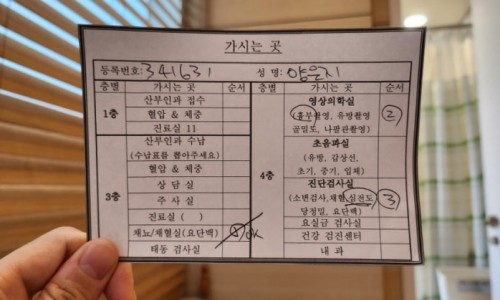 가시는 곳
등록번호: 341631 성 명: 양은지
층별 가시는 곳 순서
1층
산부인과 접수
혈압 & 체중
진료실 11
3층
산부인과 수납
(수납표를 뽑아주세요)
혈압 & 체중
상 담 실
주 사 실
진료실 ( )
채뇨/채혈실(요단백) ① OK
태동 검사실
층별 가시는 곳 순서
4층
영상의학실 ②
(흉부촬영, 유방촬영
골밀도, 나팔관촬영)
초음파실
(유방, 갑상선,
초기, 중기, 입체)
진단검사실 ③
(소변검사,채혈,심전도
당정밀, 요단백)
요실금 검사실
건강 검진센터
내 과